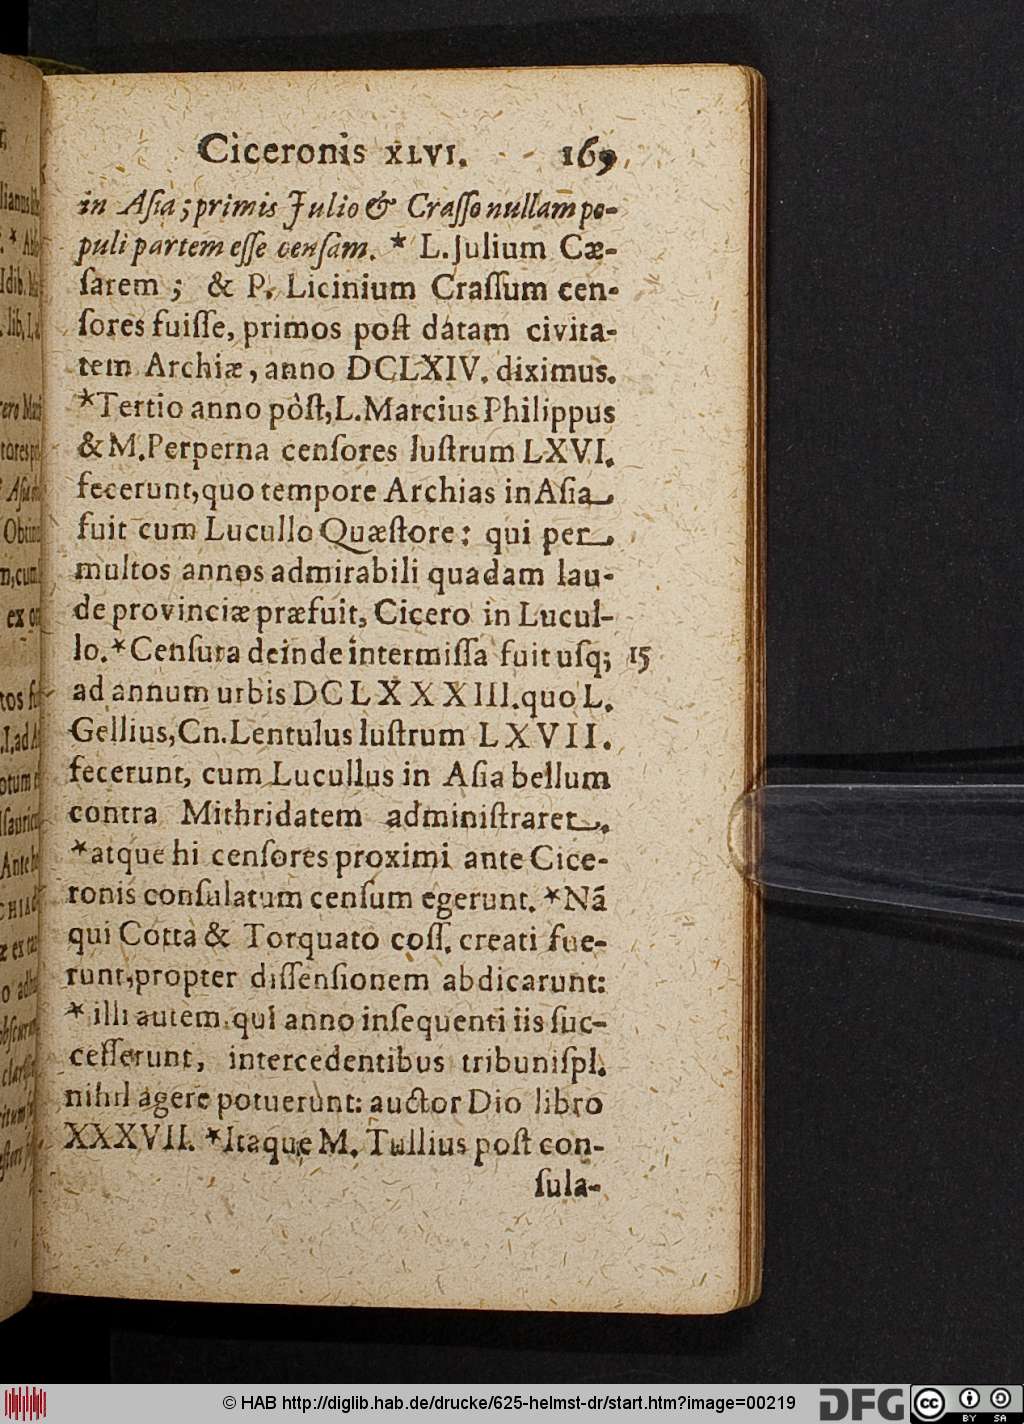 Ciceronis XLVI. 169
in Aſia; primis Julio & Craſſo nullam po-
puli partem eſſe cenſam. * L. Julium Cæ-
ſarem ; & P. Licinium Craſſum cen-
ſores fuiſſe, primos poſt datam civita-
tem Archiæ, anno DCLXIV. diximus.
*Tertio anno pòſt, L. Marcius Philippus
& M. Perperna cenſores luſtrum LXVI.
fecerunt, quo tempore Archias in Aſia
fuit cum Lucullo Quæſtore: qui per
multos annos admirabili quadam lau-
de provinciæ præfuit, Cicero in Lucul-
lo. *Cenſura deinde intermiſſa fuit uſq; 15
ad annum urbis DCLXXXIII. quo L.
Gellius, Cn. Lentulus luſtrum LXVII.
fecerunt, cum Lucullus in Aſia bellum
contra Mithridatem adminiſtraret.
*atque hi cenſores proximi ante Cice-
ronis conſulatum cenſum egerunt. *Nã
qui Cotta & Torquato coſſ. creati fue-
runt, propter diſſenſionem abdicarunt:
* illi autem qui anno inſequenti iis ſuc-
ceſſerunt, intercedentibus tribuniſpl.
nihil agere potuerunt: auctor Dio libro
XXXVII. *Itaque M. Tullius poſt con-
ſula-
© HAB http://diglib.hab.de/drucke/625-helmst-dr/start.htm?image=00219
DFG
cc BY SA